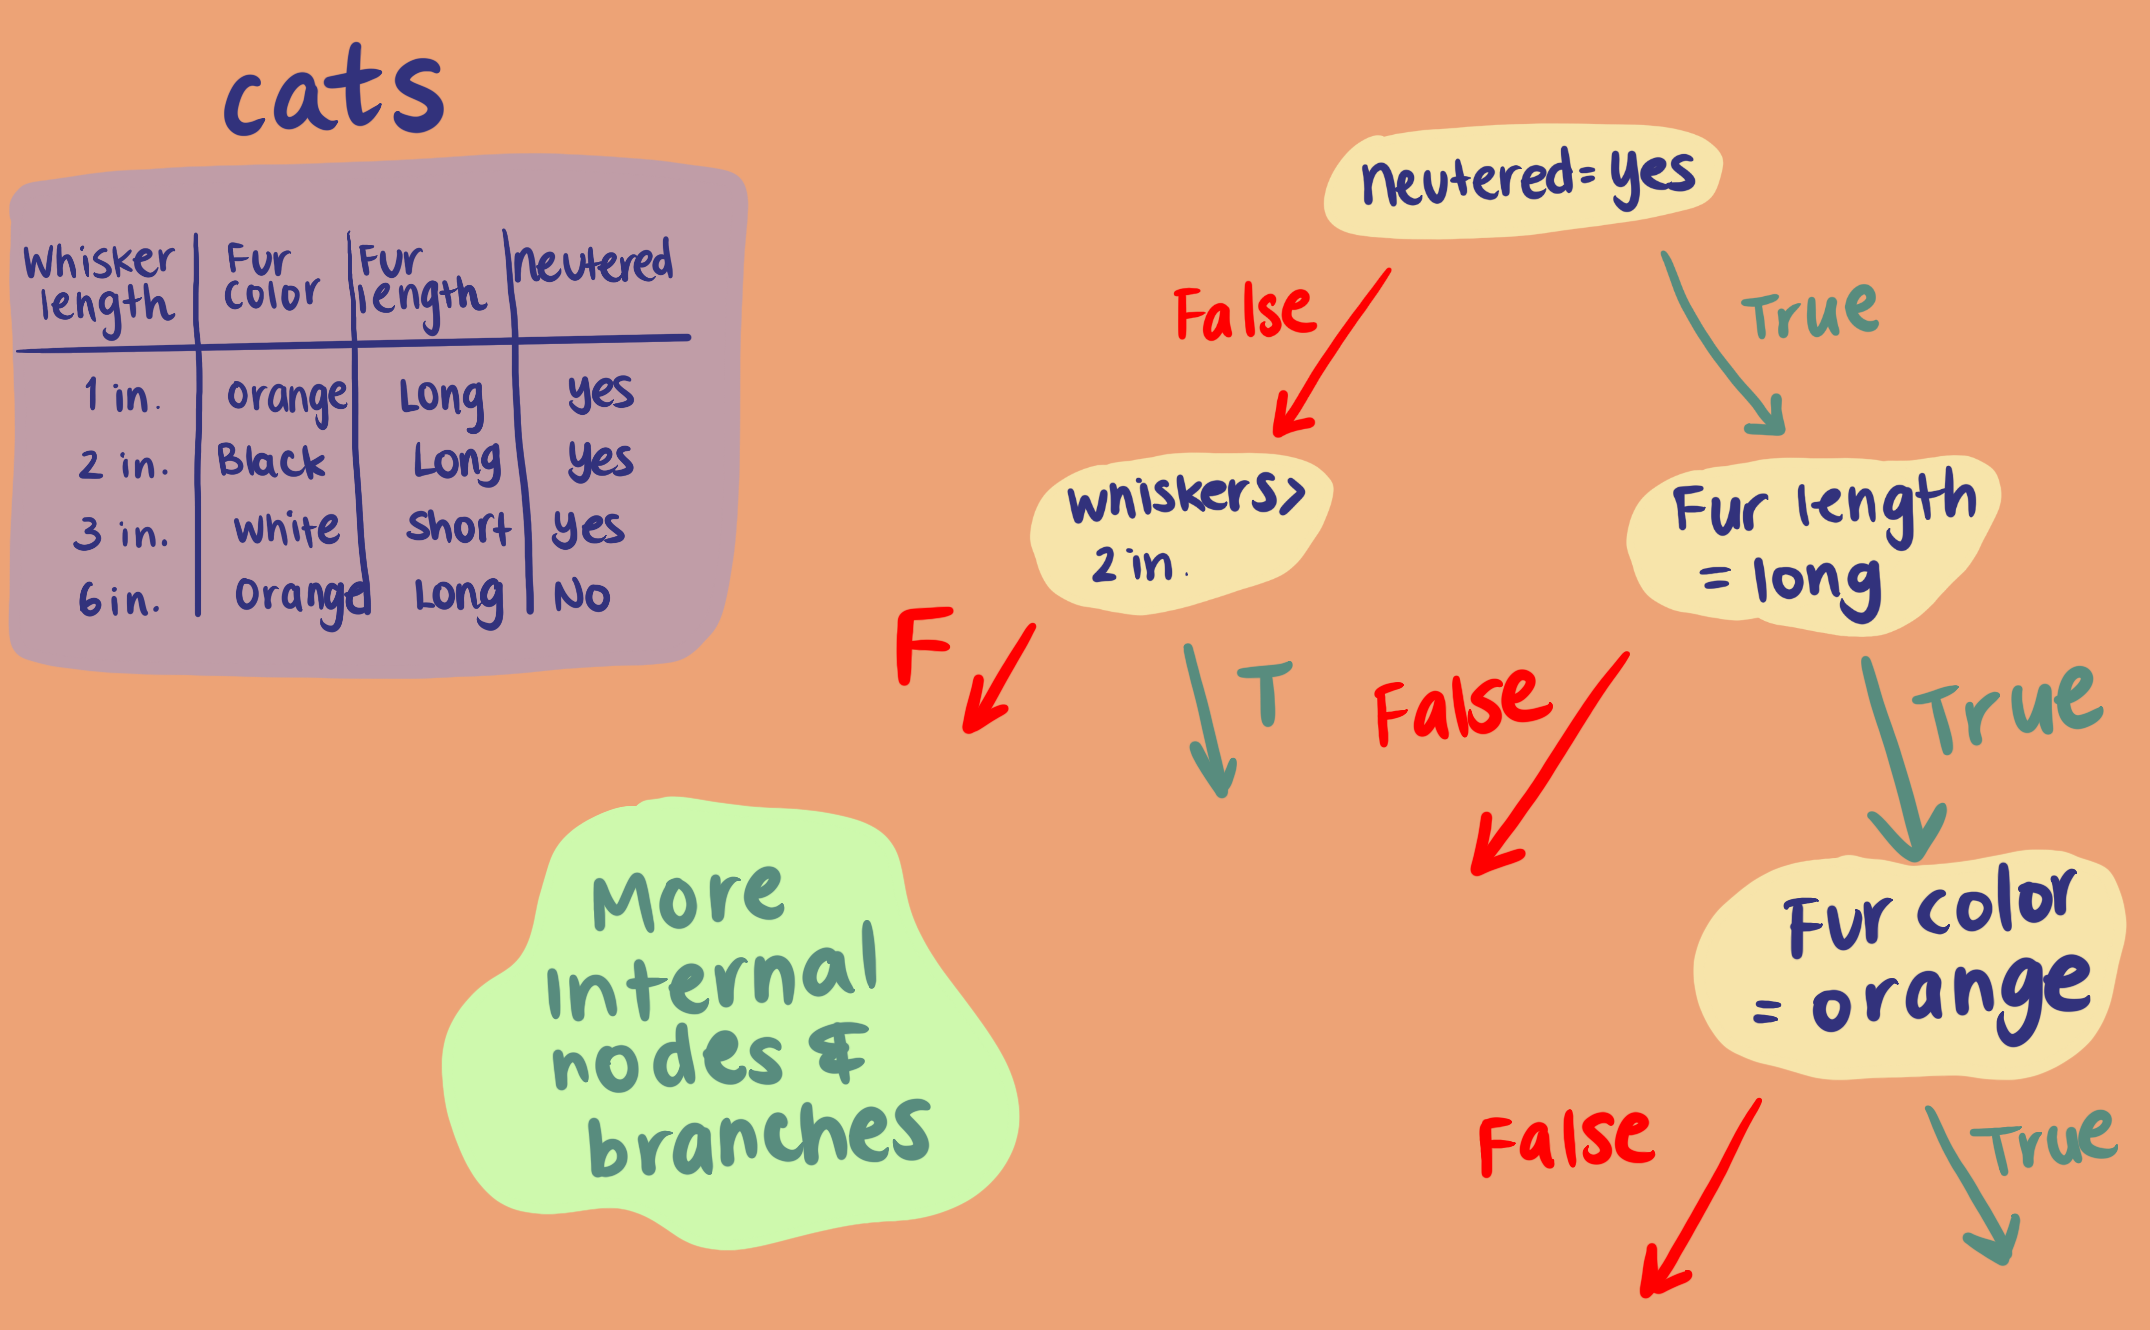 cats
Whisker length | Fur color | Fur length | neutered
1 in. | orange | Long | yes
2 in. | Black | Long | yes
3 in. | white | short | yes
6 in. | orange | Long | No
neutered = yes
False
True
whiskers >
2 in.
Fur length
= long
F
T
False
True
Fur color
= orange
False
True
More
internal
nodes &
branches